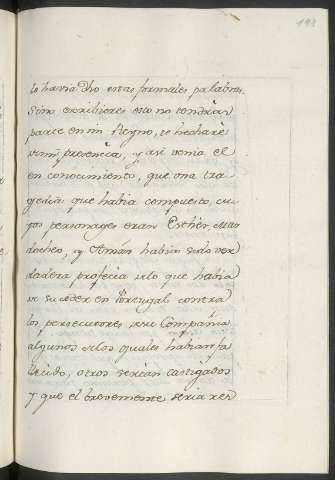 193
le havia dho estas formales palabras.
Si no escribieres esto no tendrias
parte en mi Reyno, te hecharè
de mi presencia, y asi venia el
en conocimiento, que una tra
gedia que habia compuesto, cu
yos personages eran Esther, Mar
docheo, y Amàn habia sido ver
dadera profecia de lo que habia
de suceder en Portugal contra
los persecutores de su Compañia
algunos de los quales habian fa
llecido, otros serian castigados
y que el brevemente seria res